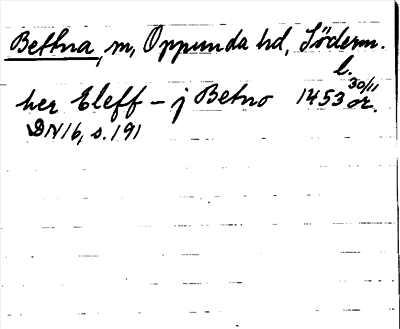 Bettna, sn, Oppunda hd, Söderm. l.
her Eleff – j Betno 1453 30/11 or.
DN 16, s. 191